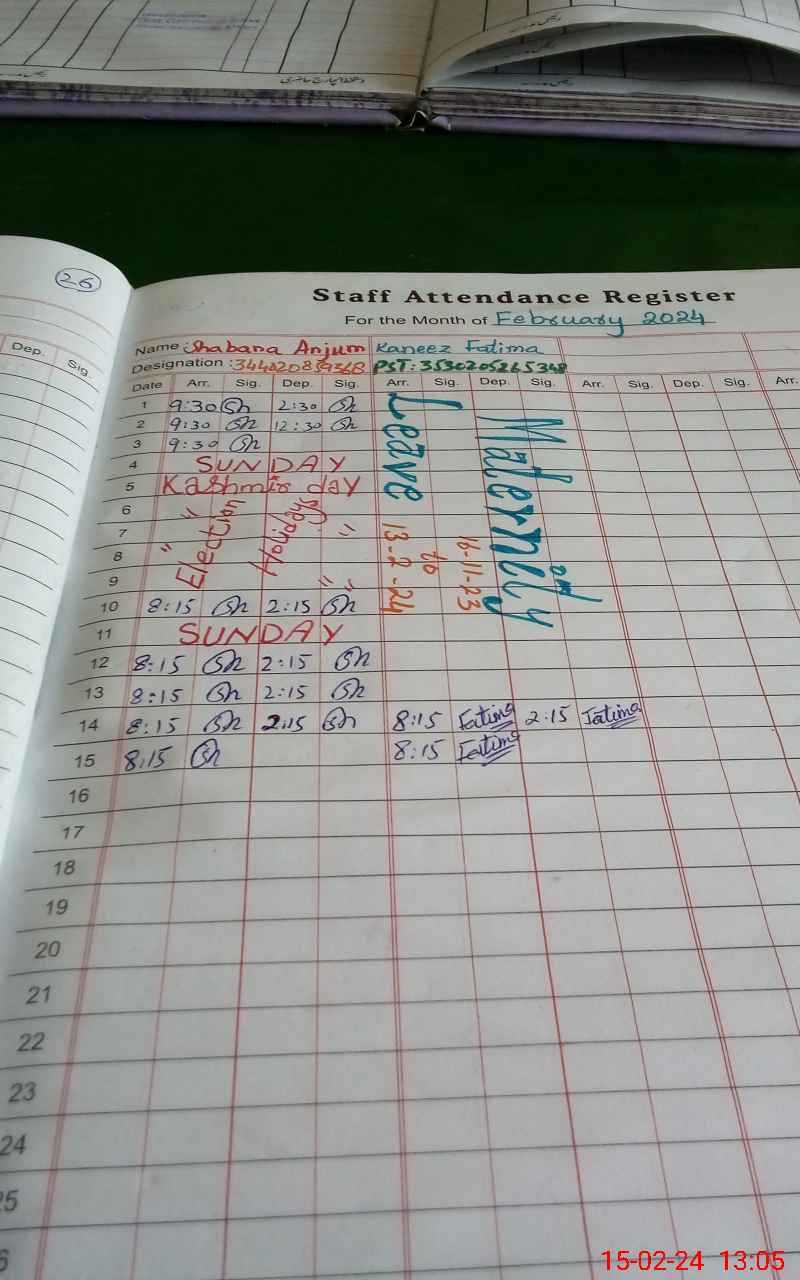 26
Staff Attendance Register
For the Month of February 2024
Dep. Sig.
Name : Shabana Anjum Kaneez Fatima
Designation : PST: 3530205265348
Date Arr. Sig. Dep. Sig. Arr. Sig. Dep. Sig. Arr. Sig. Dep. Sig. Arr.
1 9:30 Sh 2:30 Sh
2 9:30 Sh 12:30 Sh
3 9:30 Sh
4 SUNDAY
5 Kashmir day
6 "
7 Election Holidays "
8 "
9 " "
10 8:15 Sh 2:15 Sh
Leave 13-2-24 to 16-11-23 Maternity 2nd
11 SUNDAY
12 8:15 Sh 2:15 Sh
13 8:15 Sh 2:15 Sh
14 8:15 Sh 2:15 Sh 8:15 Fatima 2:15 Fatima
15 8:15 Sh 8:15 Fatima
16
17
18
19
20
21
22
23
24
25
6
15-02-24 13:05